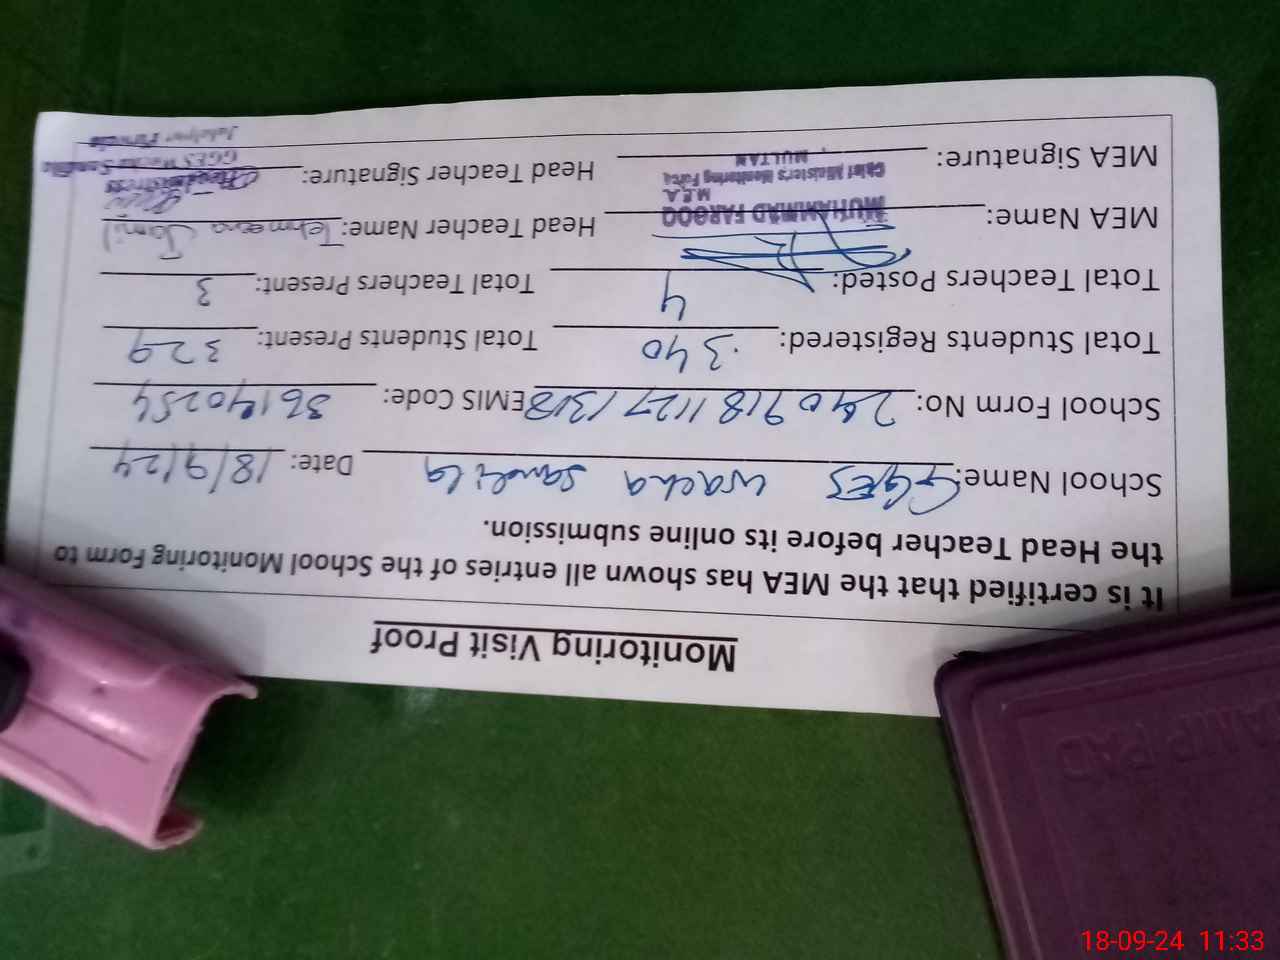 Monitoring Visit Proof
It is certified that the MEA has shown all entries of the School Monitoring Form to
the Head Teacher before its online submission.
School Name: GGES wacha sandila Date: 18/9/24
School Form No: 24091811271318 EMIS Code: 36140254
Total Students Registered: 340 Total Students Present: 329
Total Teachers Posted: 4 Total Teachers Present: 3
MEA Name: MUHAMMAD FAROOQ Head Teacher Name: Tehmeena Jamil
M.E.A.
Chief Minister's Monitoring Force
MULTAN
MEA Signature: Head Teacher Signature: Headmistress
GGES Wacha Sandila
Jalalpur Pirwala
STAMP PAD
18-09-24 11:33